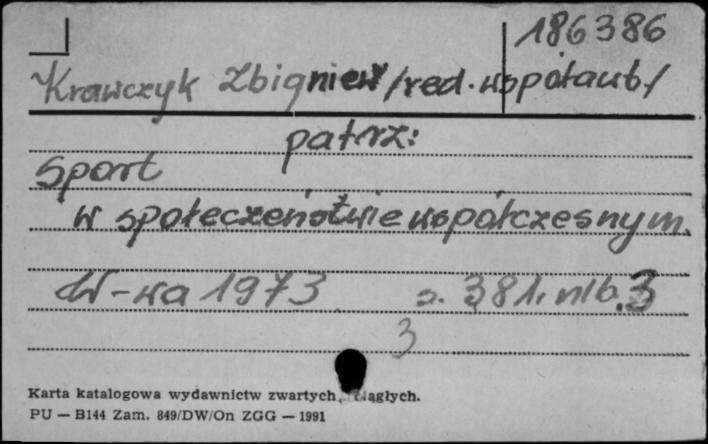 186386
Krawczyk Zbigniew /red. współaut./
patrz:
Sport
w społeczeństwie współczesnym.
W-wa 1973 s. 381, nlb. 3
3
Karta katalogowa wydawnictw zwartych, ciągłych.
PU — B144 Zam. 849/DW/On ZGG — 1991